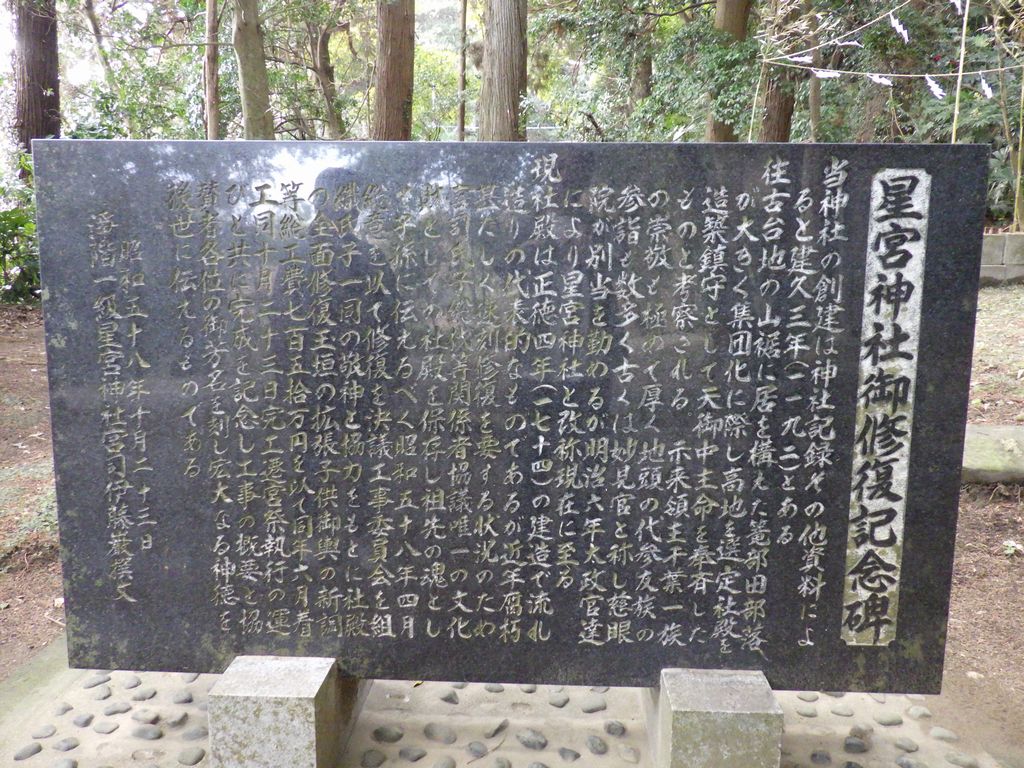 星宮神社御修復記念碑
当神社の創建は神社記録々の他資料によ
ると建久三年(一一九二)とある
往古台地の山裾に居を構えた篭部田部落
が大きく集団化に際し高地を選定社殿を
造築鎮守として天御中主命を奉斉した
ものと考察される 示来領主千葉一族
の崇敬も極めて厚く地頭の代参友族の
参詣も数多く古くは妙見宮と称し慈眼
院が別当を勤めるが明治六年太政官達
により星宮神社と改称現在に至る
現社殿は正徳四年(一七十四)の建造で流れ
造りの代表的なものてあるが近年腐朽
甚だしく復刻修復を要する状況のため
宮司氏子総代等関係者協議唯一の文化
財としての社殿を保存し祖先の魂とし
て子孫に伝えるべく昭和五十八年四月
総意を以て修復を決議工事委員会を組
織氏子一同の敬神と協力をもとに社殿
の全面修復玉垣の拡張子供御輿の新調
等総工費七百五拾万円を以て同年六月着
工同十月二十三日完工遷宮祭執行の運
びと共に完成を記念し工事の概要と協
賛者各位の御芳名を刻し宏大なる神徳を
後世に伝えるものてある
昭和五十八年十月二十三日
浄階一級星宮神社宮司伊藤巌撰文